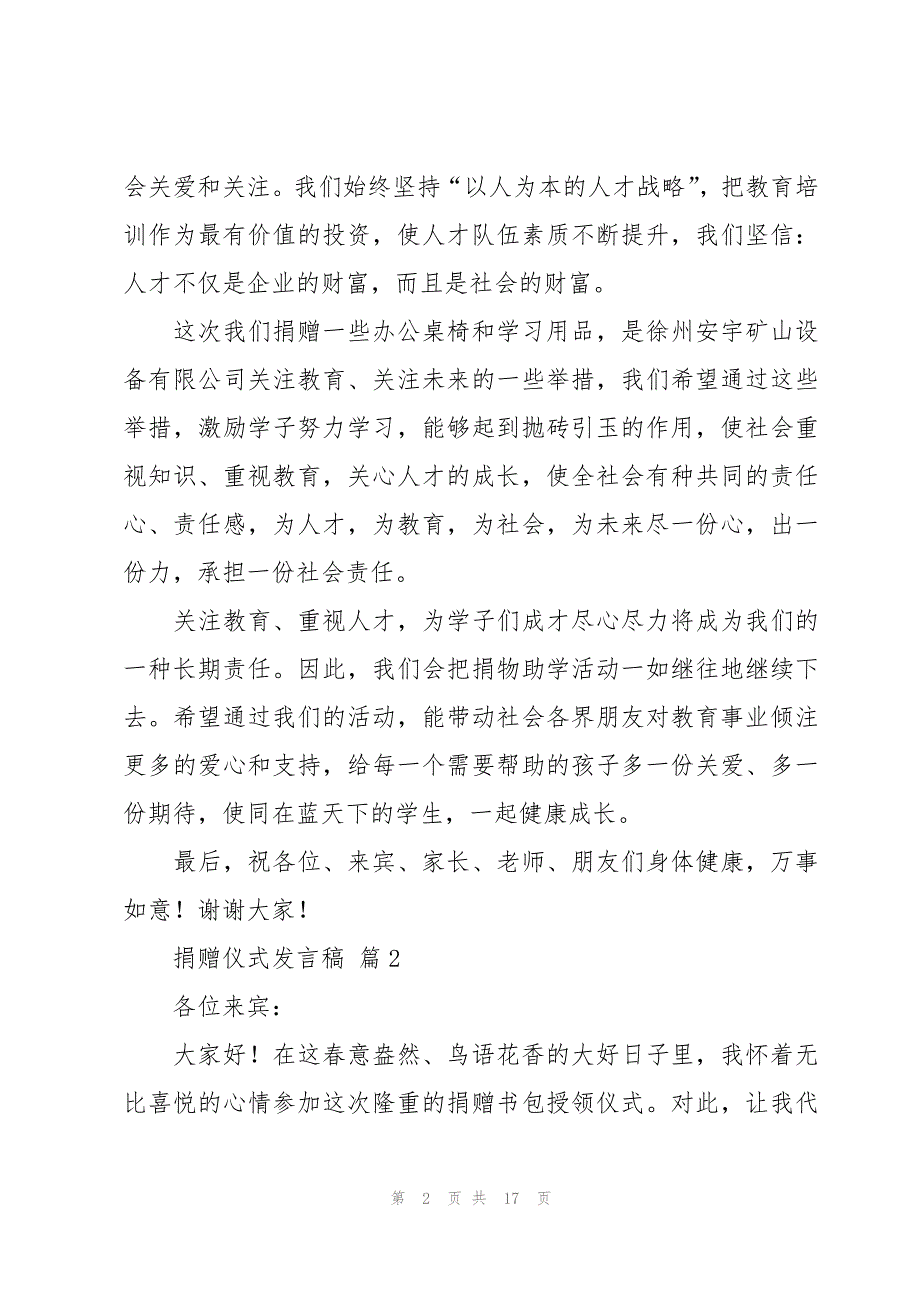 会关爱和关注。我们始终坚持“以人为本的人才战略”，把教育培
训作为最有价值的投资，使人才队伍素质不断提升，我们坚信：
人才不仅是企业的财富，而且是社会的财富。
这次我们捐赠一些办公桌椅和学习用品，是徐州安宇矿山设
备有限公司关注教育、关注未来的一些举措，我们希望通过这些
举措，激励学子努力学习，能够起到抛砖引玉的作用，使社会重
视知识、重视教育，关心人才的成长，使全社会有种共同的责任
心、责任感，为人才，为教育，为社会，为未来尽一份心，出一
份力，承担一份社会责任。
关注教育、重视人才，为学子们成才尽心尽力将成为我们的
一种长期责任。因此，我们会把捐物助学活动一如继往地继续下
去。希望通过我们的活动，能带动社会各界朋友对教育事业倾注
更多的爱心和支持，给每一个需要帮助的孩子多一份关爱、多一
份期待，使同在蓝天下的学生，一起健康成长。
最后，祝各位、来宾、家长、老师、朋友们身体健康，万事
如意！谢谢大家！
捐赠仪式发言稿 篇2
各位来宾：
大家好！在这春意盎然、鸟语花香的大好日子里，我怀着无
比喜悦的心情参加这次隆重的捐赠书包授领仪式。对此，让我代
第 2 页 共 17 页